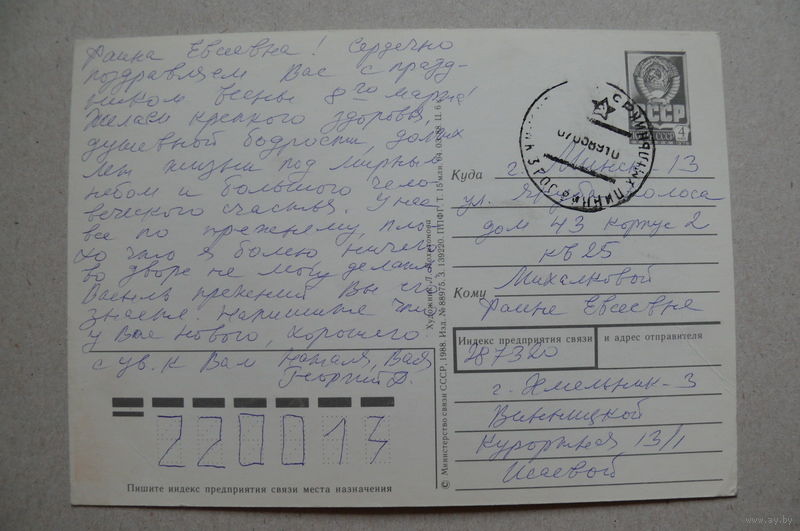 Фаина Евсеевна! Сердечно
поздравляем Вас с празд-
ником весны 8го марта!
Желаем крепкого здоровья,
душевной бодрости, долгих
лет жизни под мирным
небом и большого чело-
веческого счастья. У нас
все по прежнему, пло-
хо что я болею ничего
во дворе не могу делать
Василь прежний Вы его
знаете. Напишите что
у Вас нового, хорошего
с ув. к Вам Наталя, Вася
Георгий Д.
220014
Пишите индекс предприятия связи места назначения
© Министерство связи СССР, 1988. Изд. № 88975. З. 139220. ППФГ. Т. 15 млн.
Художник Л.
СССР
4
Куда
г. Минск-13
ул. Якуба Коласа
дом 43 корпус 2
кв 25
Кому
Михалковой
Фаине Евсеевне
Индекс предприятия связи и адрес отправителя
287320
г. Хмельник-3
Винницкой
Курортная 13/1
Исаевой
www.ay.by